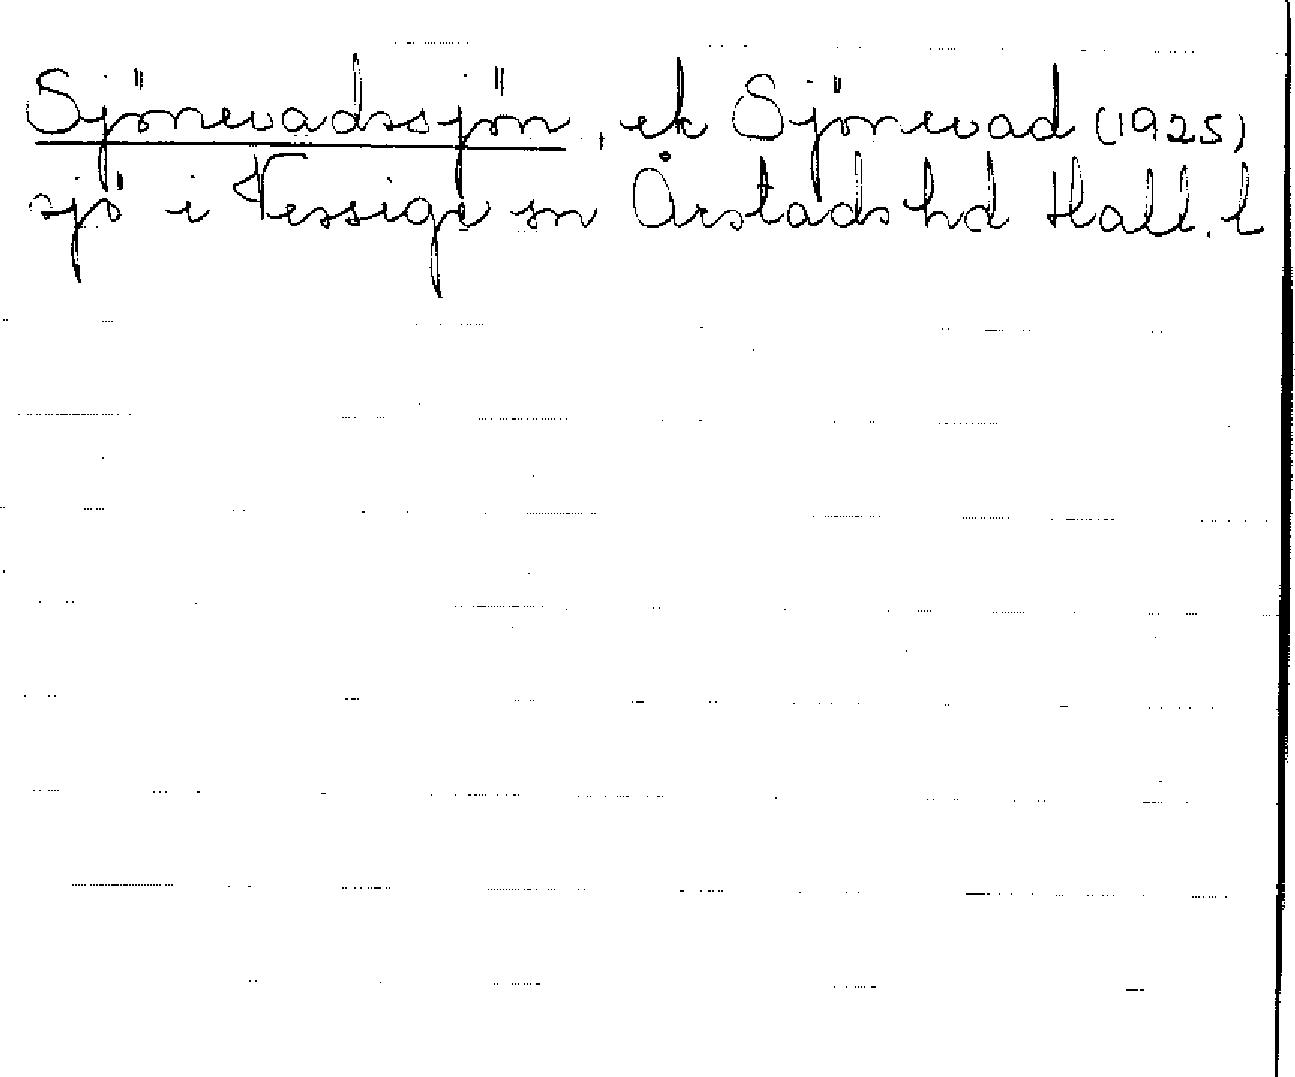 Sjönevadssjön, ek Sjönevad (1925)
sjö i Vessige sn Årstads hd Hall. l